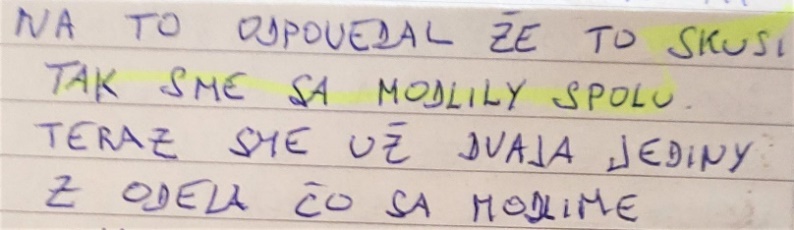 NA TO ODPOVEDAL ŽE TO SKUSI
TAK SME SA MODLILY SPOLU.
TERAZ SME UŽ DVAJA JEDINY
Z ODELA ČO SA MODLIME